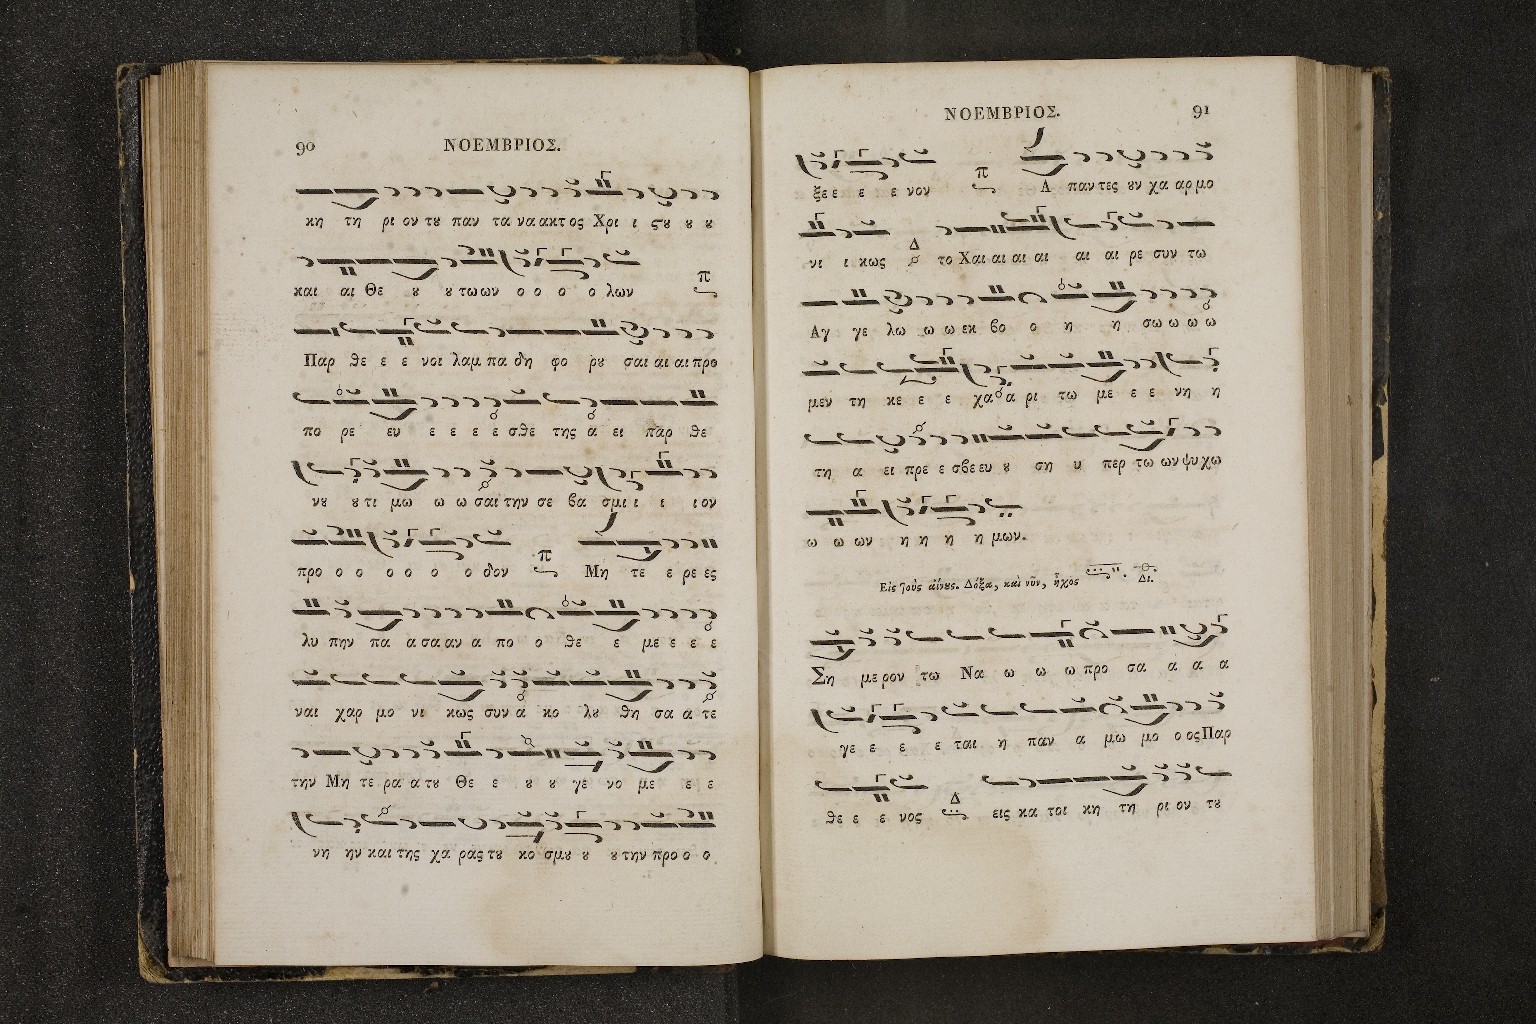 90 ΝΟΕΜΒΡΙΟΣ.
κη τη ρι ον τȣ παν τα να ακτ ος Χρι ι ςȣ ȣ ȣ
και αι Θε ȣ ȣ τω ων ο ο ο ο λων π
Παρ θε ε ε νοι λαμ πα δη φο ρȣ σαι αι αι προ
πο ρε ευ ε ε ε ε σθε της α ει παρ θε
νȣ ȣ τι μω ω ω σαι την σε βα σμι ι ι ι ον
προ ο ο ο ο ο ο δον π Μη τε ε ρε ες
λυ πην πα α σα αν α πο ο θε ε με ε ε ε
ναι χαρ μο νι κως συν α κο λȣ θη σα α τε
την Μη τε ρα α τȣ Θε ε ȣ ȣ γε νο με ε ε
νη ην και της χα ρας τȣ κο σμȣ ȣ ȣ την προ ο ο
ΝΟΕΜΒΡΙΟΣ. 91
ξε ε ε ε νον π Α παν τες ȣν χα αρ μο
νι ι κως Δ το Χαι αι αι αι αι αι ρε συν τω
Αγ γε λω ω ω εκ βο ο η η σω ω ω ω
μεν τη κε ε ε χα α ρι τω με ε ε νη η
τη α ει πρε ε σβε ευ ȣ ση υ περ τω ων ψυ χω
ω ω ων η η η η μων.
Εἰς τοὺς αἴνȣς. Δόξα, καὶ νῦν, ἦχος Δι.
Ση με ρον τω Να ω ω ω προ σα α α α
γε ε ε ε ται η παν α μω μο ο ος Παρ
θε ε ε νος Δ εις κα τοι κη τη ρι ον τȣ